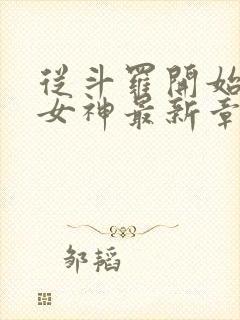 從斗羅開始
女神最新章
邹韬